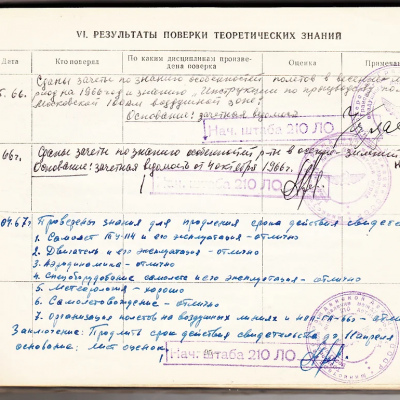 VI. РЕЗУЛЬТАТЫ ПОВЕРКИ ТЕОРЕТИЧЕСКИХ ЗНАНИЙ
Дата Кто поверял По каким дисциплинам произведена поверка Оценка Примеча
66. Сданы зачеты по знанию особенностей полетов в весенне-
период на 1966 год и знанию „Инструкции по производству по
Московской воздушной зоне.
Основание: зачетная ведомость
Нач. штаба 210 ЛО
66г. Сданы зачеты по знанию особенностей р-ты в осенне-зимний
Основание: зачетная ведомость от 4 октября 1966г.
Нач. штаба 210 ЛО
04.67г. Проверены знания для продления срока действия свидет
1. Самолет ТУ-114 и его эксплуатация - отлично
2. Двигатель и его эксплуатация - отлично
3. Аэродинамика - отлично
4. Спецоборудование самолета и его эксплуатация - отлично
5. Метеорология - хорошо
6. Самолетовождение - отлично
7. Организация полетов на воздушных линиях и НПП-ГА-66г -
Заключение: Продлить срок действия свидетельства до 11 апреля
Основание: лист оценок
Нач. штаба 210 ЛО